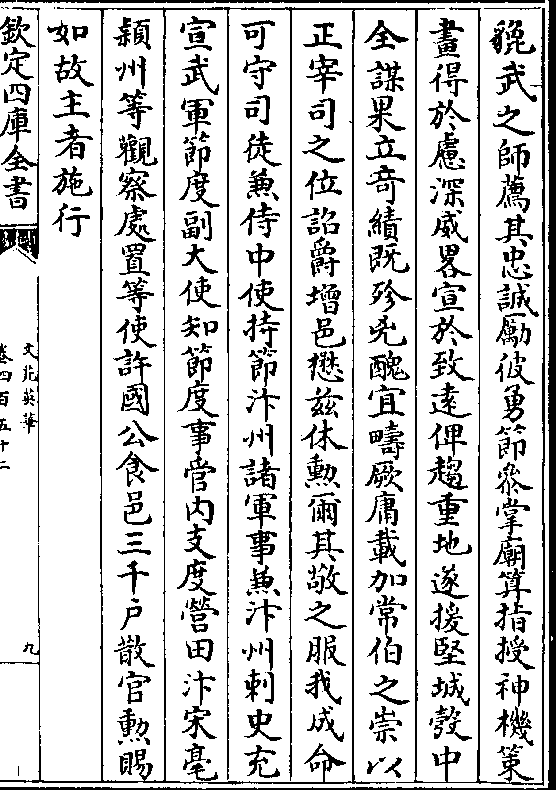 貔武之師薦其忠誠勵彼勇節叅掌廟算指授神機䇿
畫得於慮深威畧宣於致遠俾趨重地遂援堅城彀中
全謀果立竒績既殄兇醜宜疇厥庸載加常伯之崇以
正宰司之位詔爵增邑懋兹休勲爾其敬之服我成命
可守司徒兼侍中使持節汴州諸軍事兼汴州刺史充
宣武軍節度副大使知節度事管内支度營田汴宋亳
潁州等觀察處置等使許國公食邑三千户散官勲賜
如故主者施行
欽定四庫全書
文苑英華
卷四百五十二
九